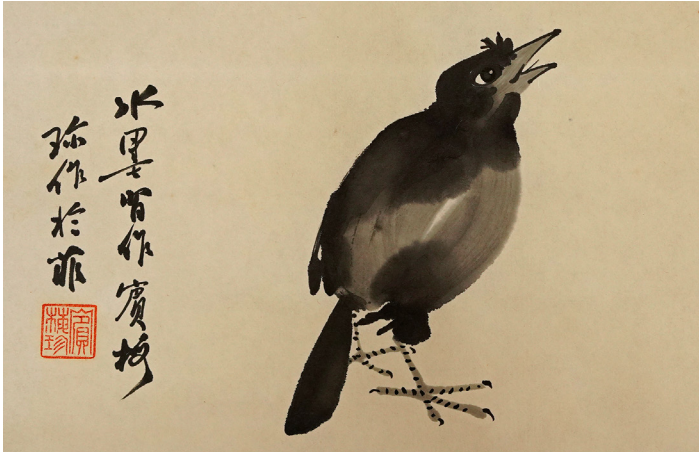 水墨習作賓梅
珍作於菲
賓
梅珍